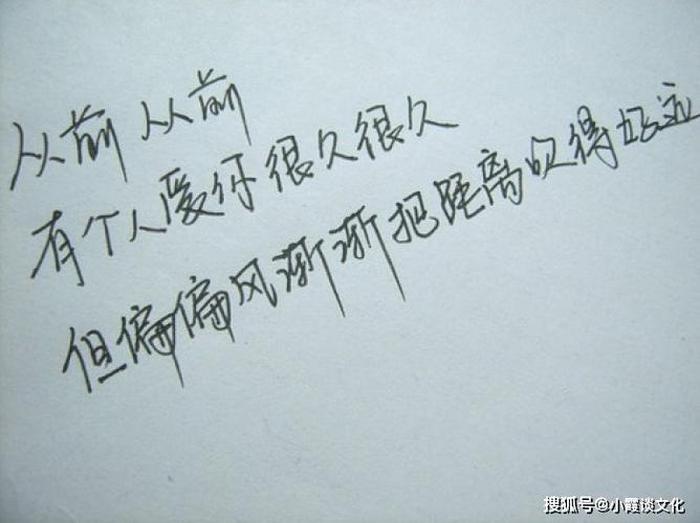 从前从前
有个人爱你很久很久
但偏偏风渐渐把距离吹得好远
搜狐号@小霞谈文化